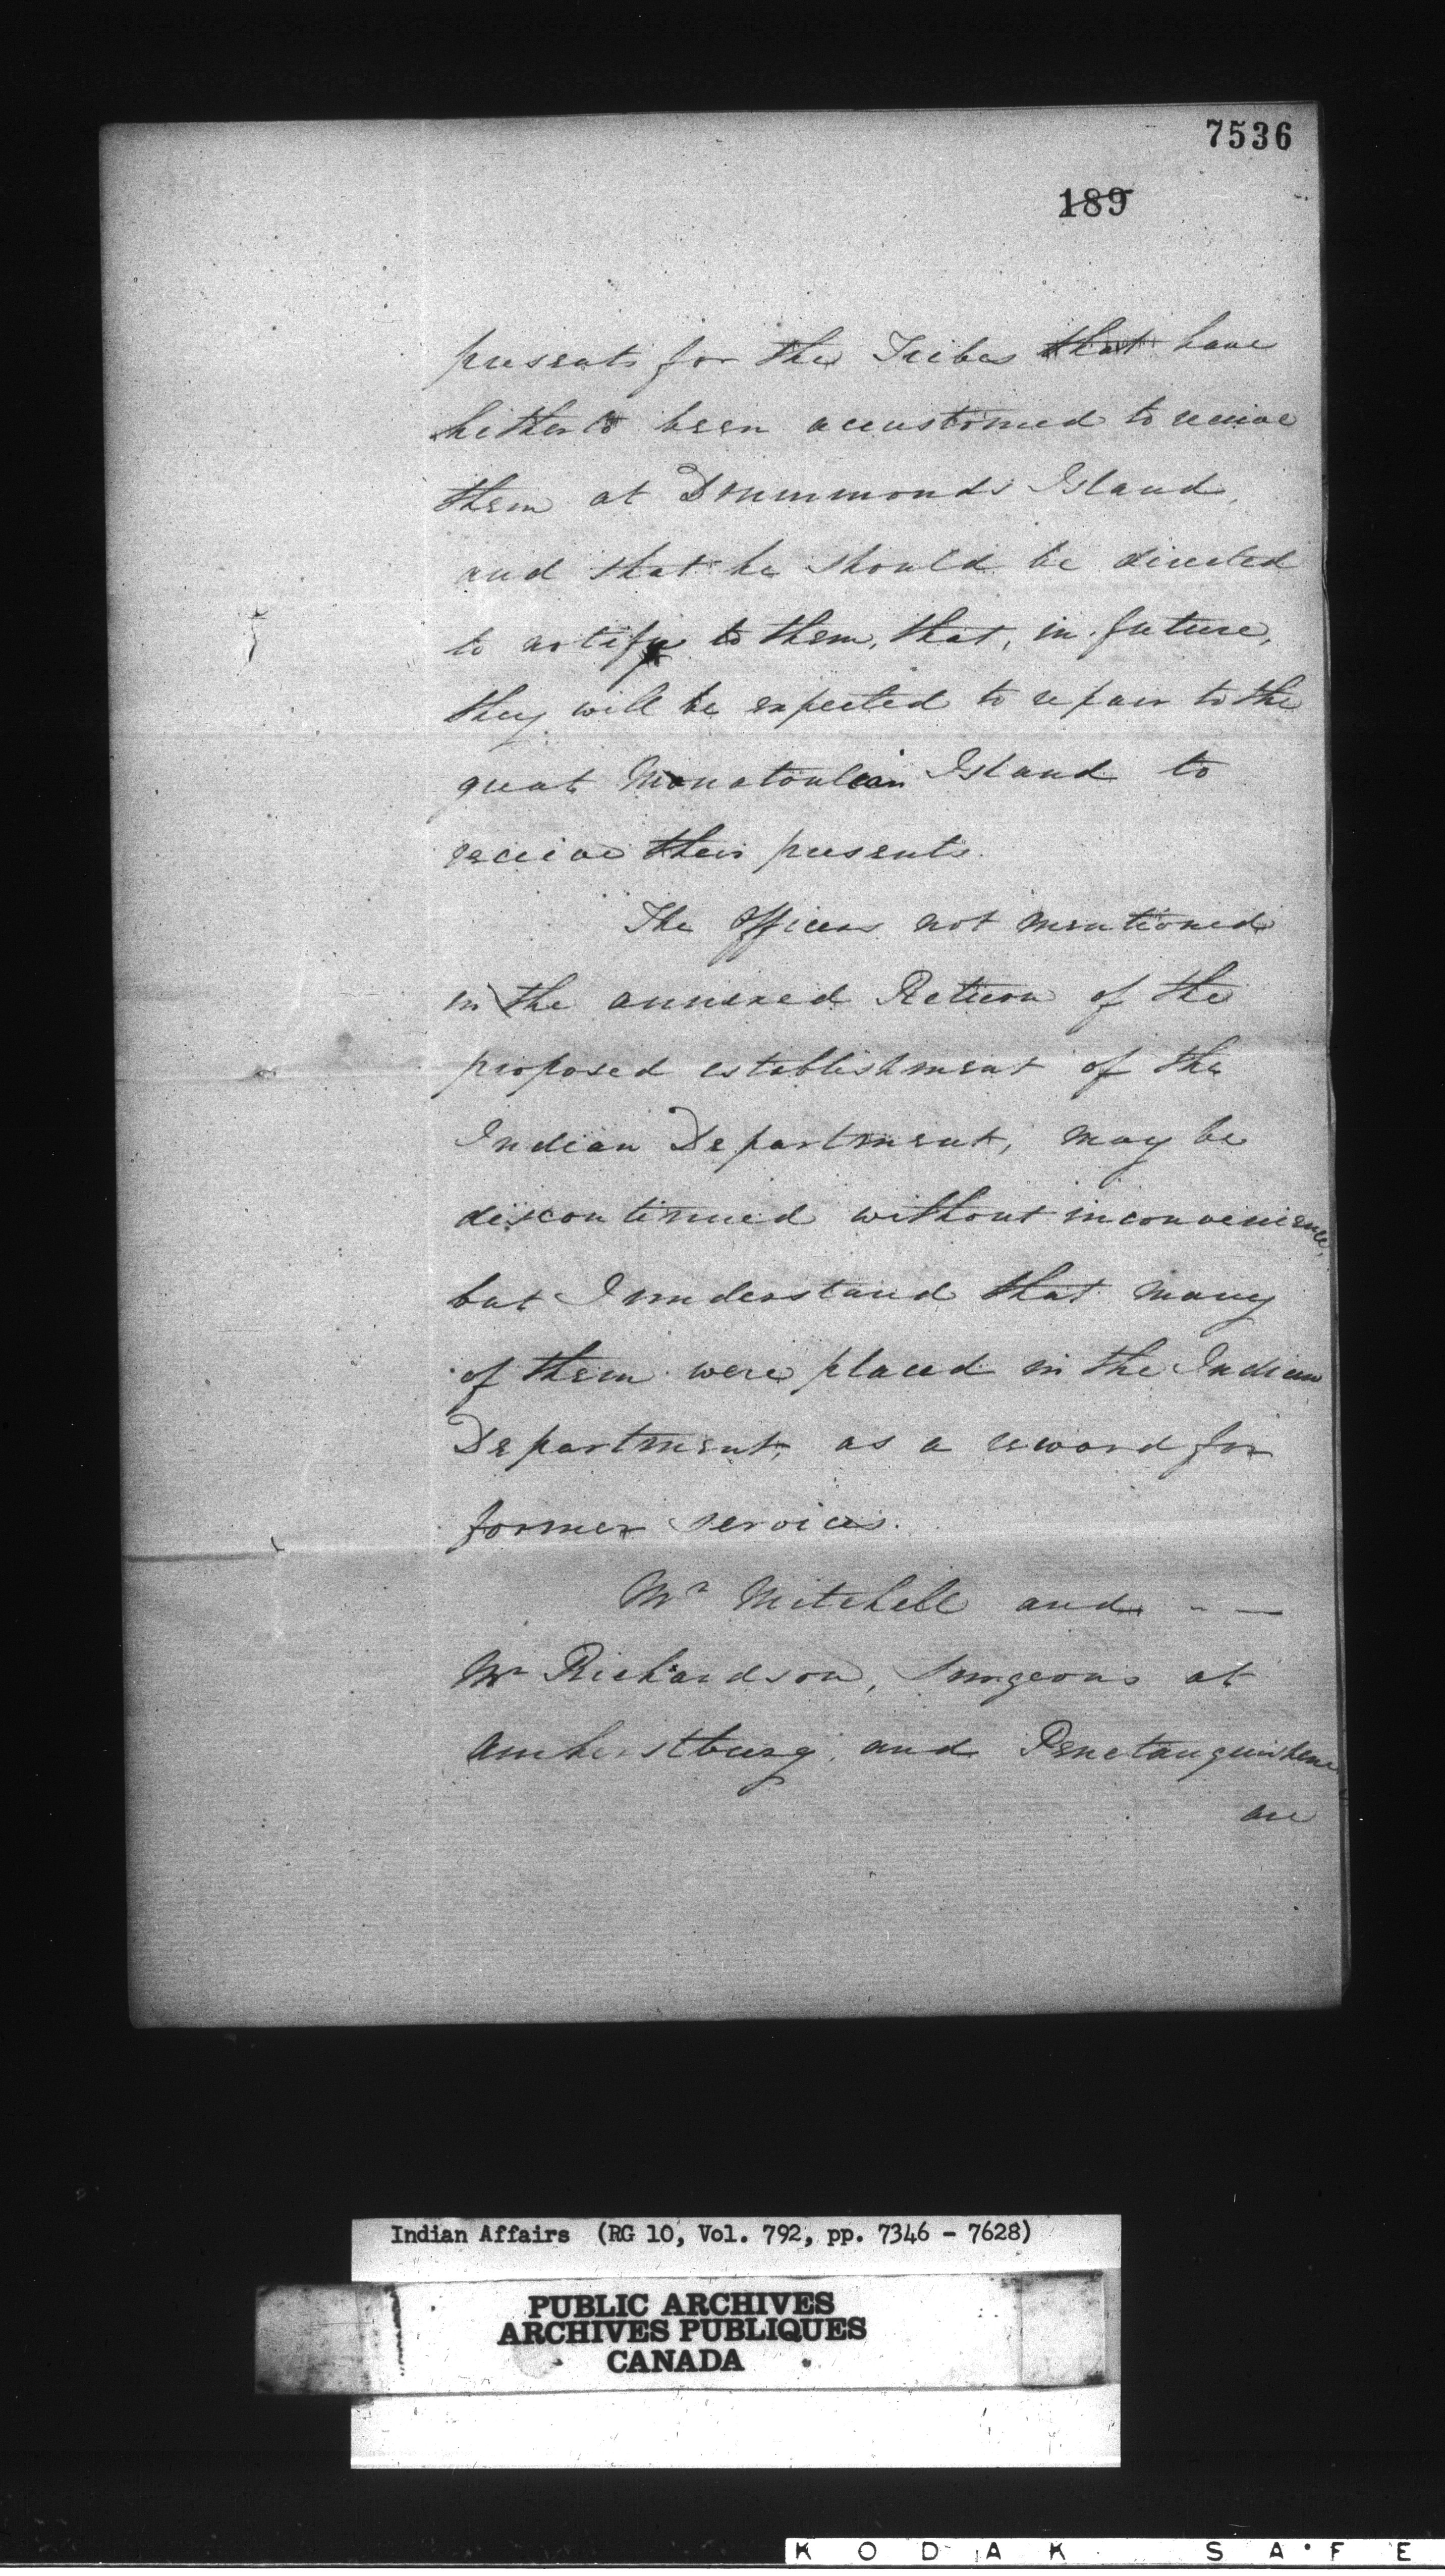 7536
189
presents for the Tribes that have
hitherto been accustomed to receive
them at Drummonds Island,
and that he should be directed
to notify to them, that, in future,
they will be expected to repair to the
great Manatoulin Island to
receive their presents.
The Officers not mentioned
in the annexed Return of the
proposed establishment of the
Indian Department, may be
discontinued without inconvenience,
but I understand that many
of them were placed in the Indian
Department, as a reward for
former services.
Mr Mitchell and - —
Mr Richardson, Surgeons at
Amherstburg, and Penetanguishene
are
Indian Affairs (RG 10, Vol. 792, pp. 7346 - 7628)
PUBLIC ARCHIVES
ARCHIVES PUBLIQUES
CANADA
KODAK SAFE